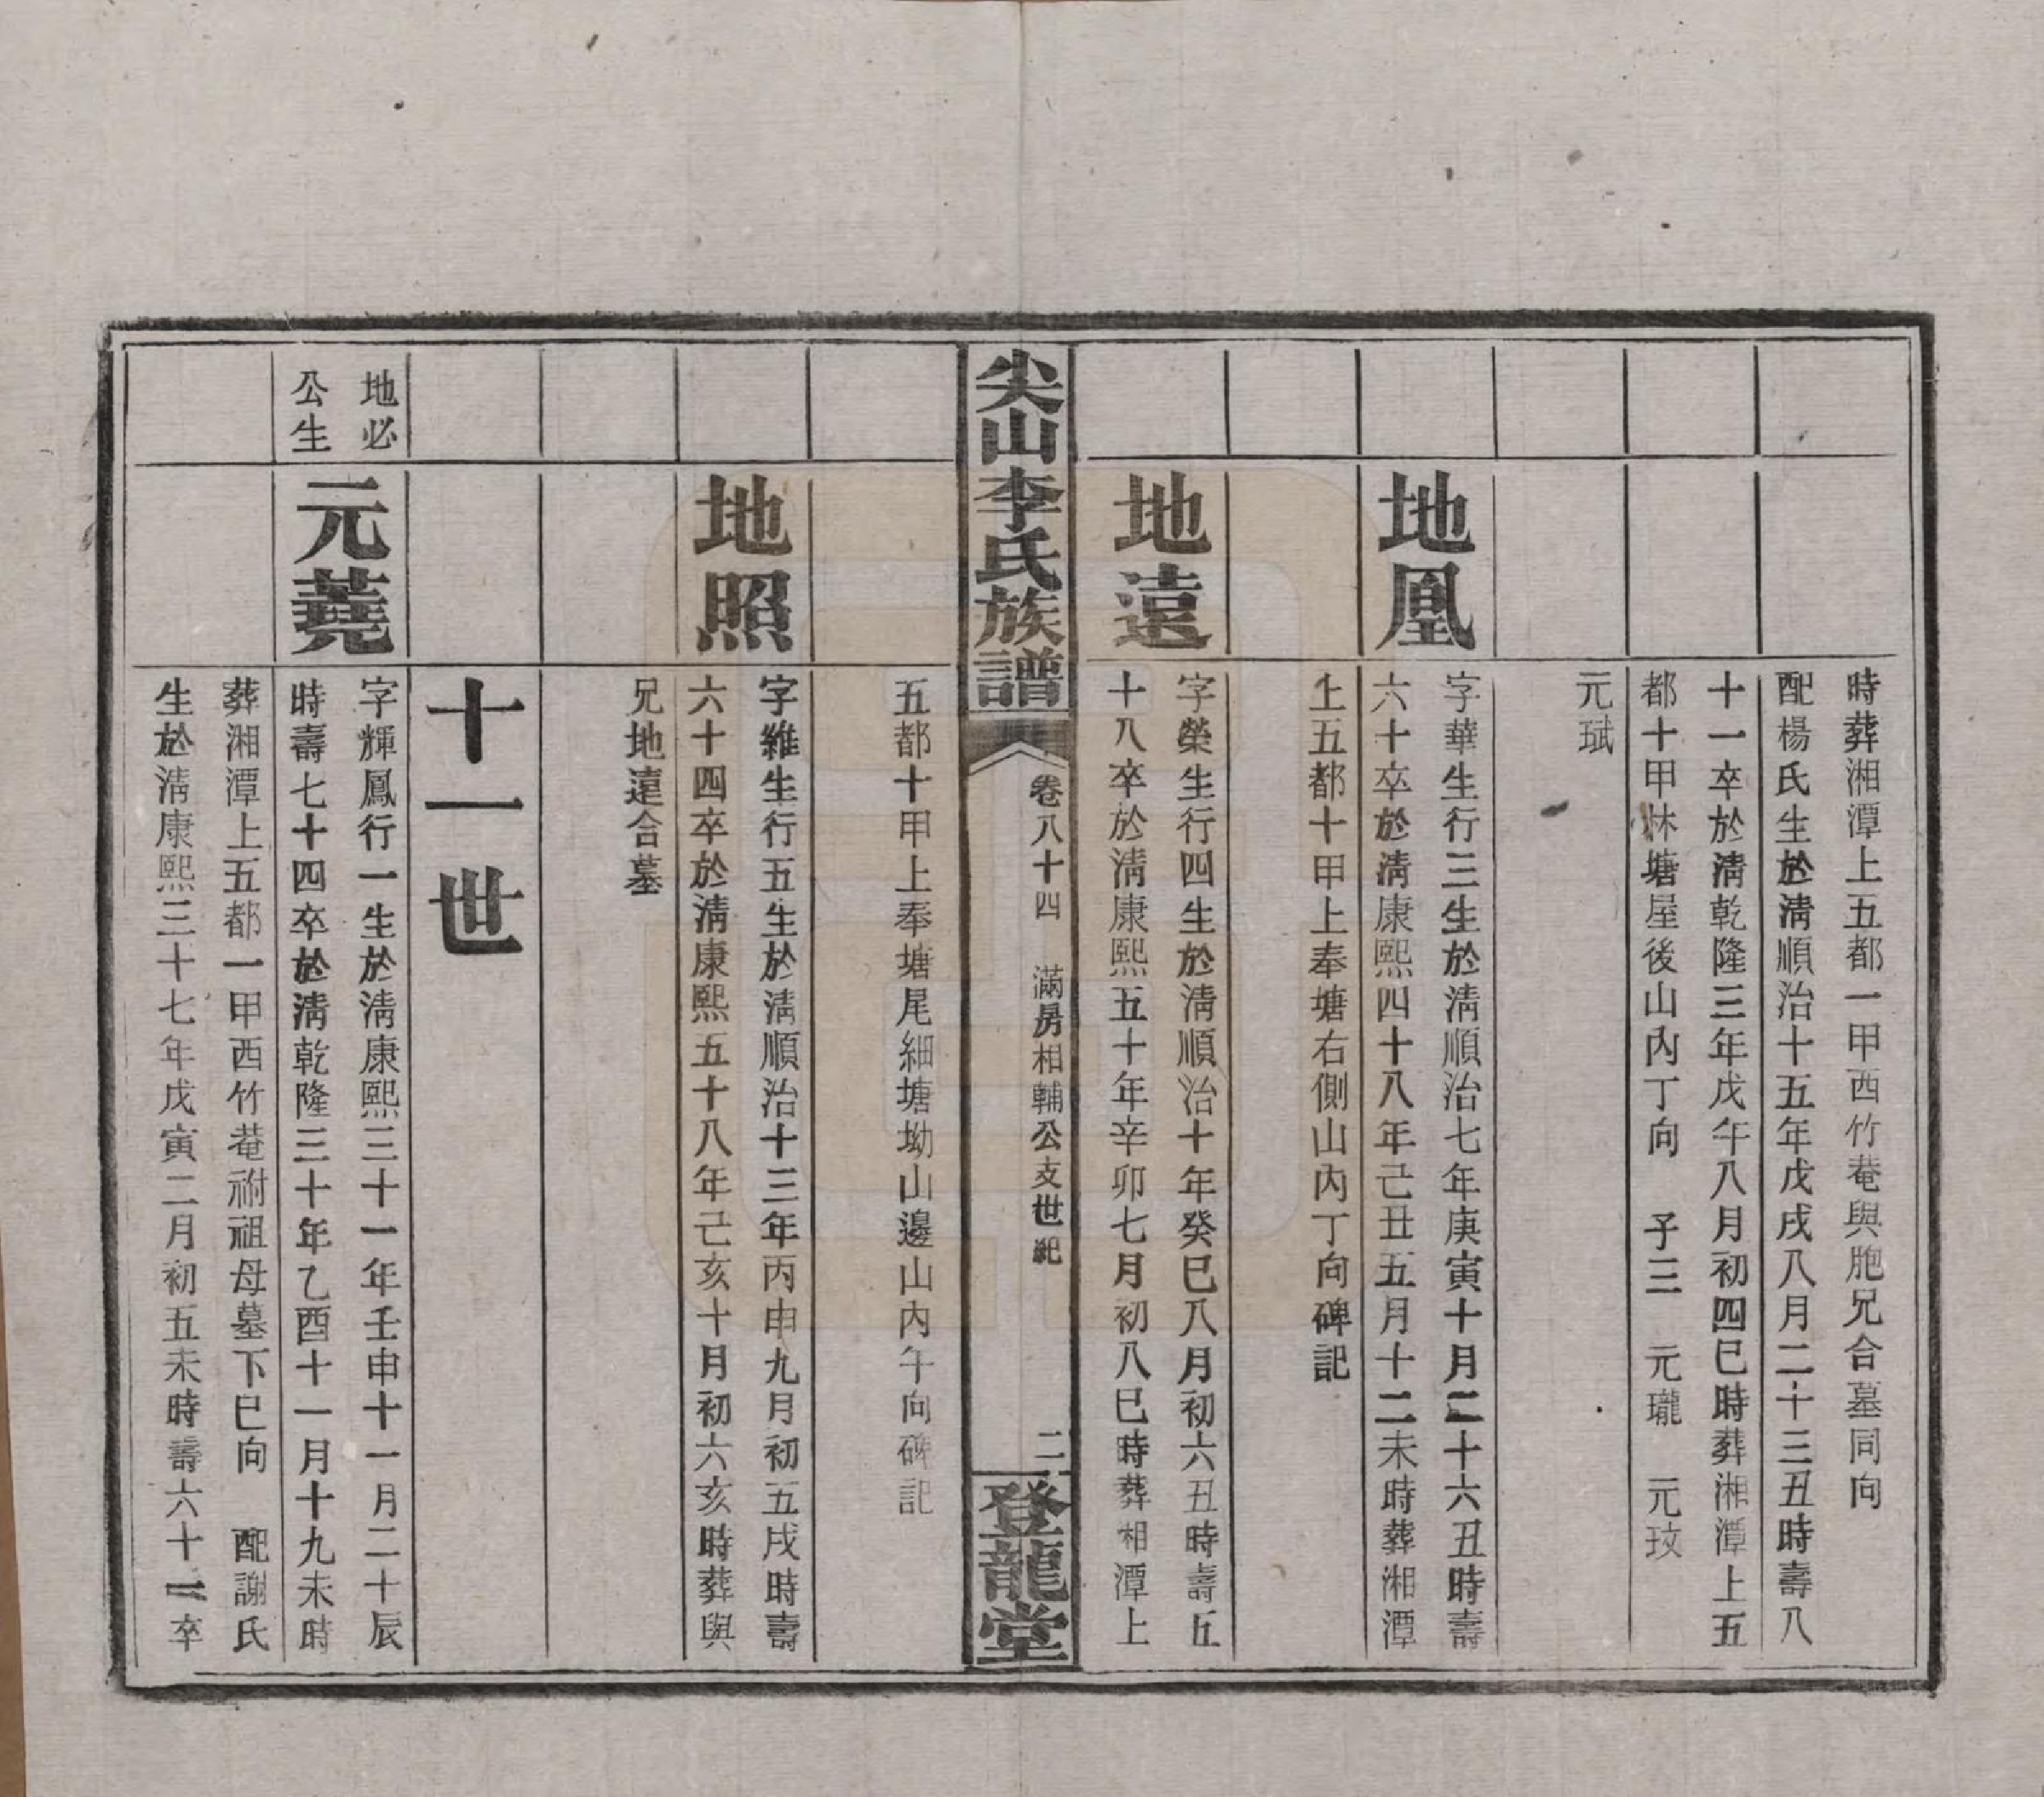 時葬湘潭上五都一甲西竹菴與胞兄合墓同向
配楊氏生於淸順治十五年戊戌八月二十三丑時壽八
十一卒於淸乾隆三年戊午八月初四巳時葬湘潭上五
都十甲林塘屋後山內丁向　子三　元瓏　元玟
元珷
地凰
字華生行三生於淸順治七年庚寅十月二十六丑時壽
六十卒於淸康熙四十八年己丑五月十二未時葬湘潭
上五都十甲上奉塘右側山內丁向碑記
地遠
字榮生行四生於淸順治十年癸巳八月初六丑時壽五
十八卒於淸康熙五十年辛卯七月初八巳時葬湘潭上
尖山李氏族譜
卷八十四　滿房相輔公支世紀
二
登龍堂
五都十甲上奉塘尾細塘坳山邊山內午向碑記
地照
字維生行五生於淸順治十三年丙申九月初五戌時壽
六十四卒於淸康熙五十八年己亥十月初六亥時葬與
兄地遠合墓
十一世
地必
公生
元蕘
字輝鳳行一生於淸康熙三十一年壬申十一月二十辰
時壽七十四卒於淸乾隆三十年乙酉十一月十九未時
葬湘潭上五都一甲西竹菴祔祖母墓下巳向　配謝氏
生於淸康熙三十七年戊寅二月初五未時壽六十二卒